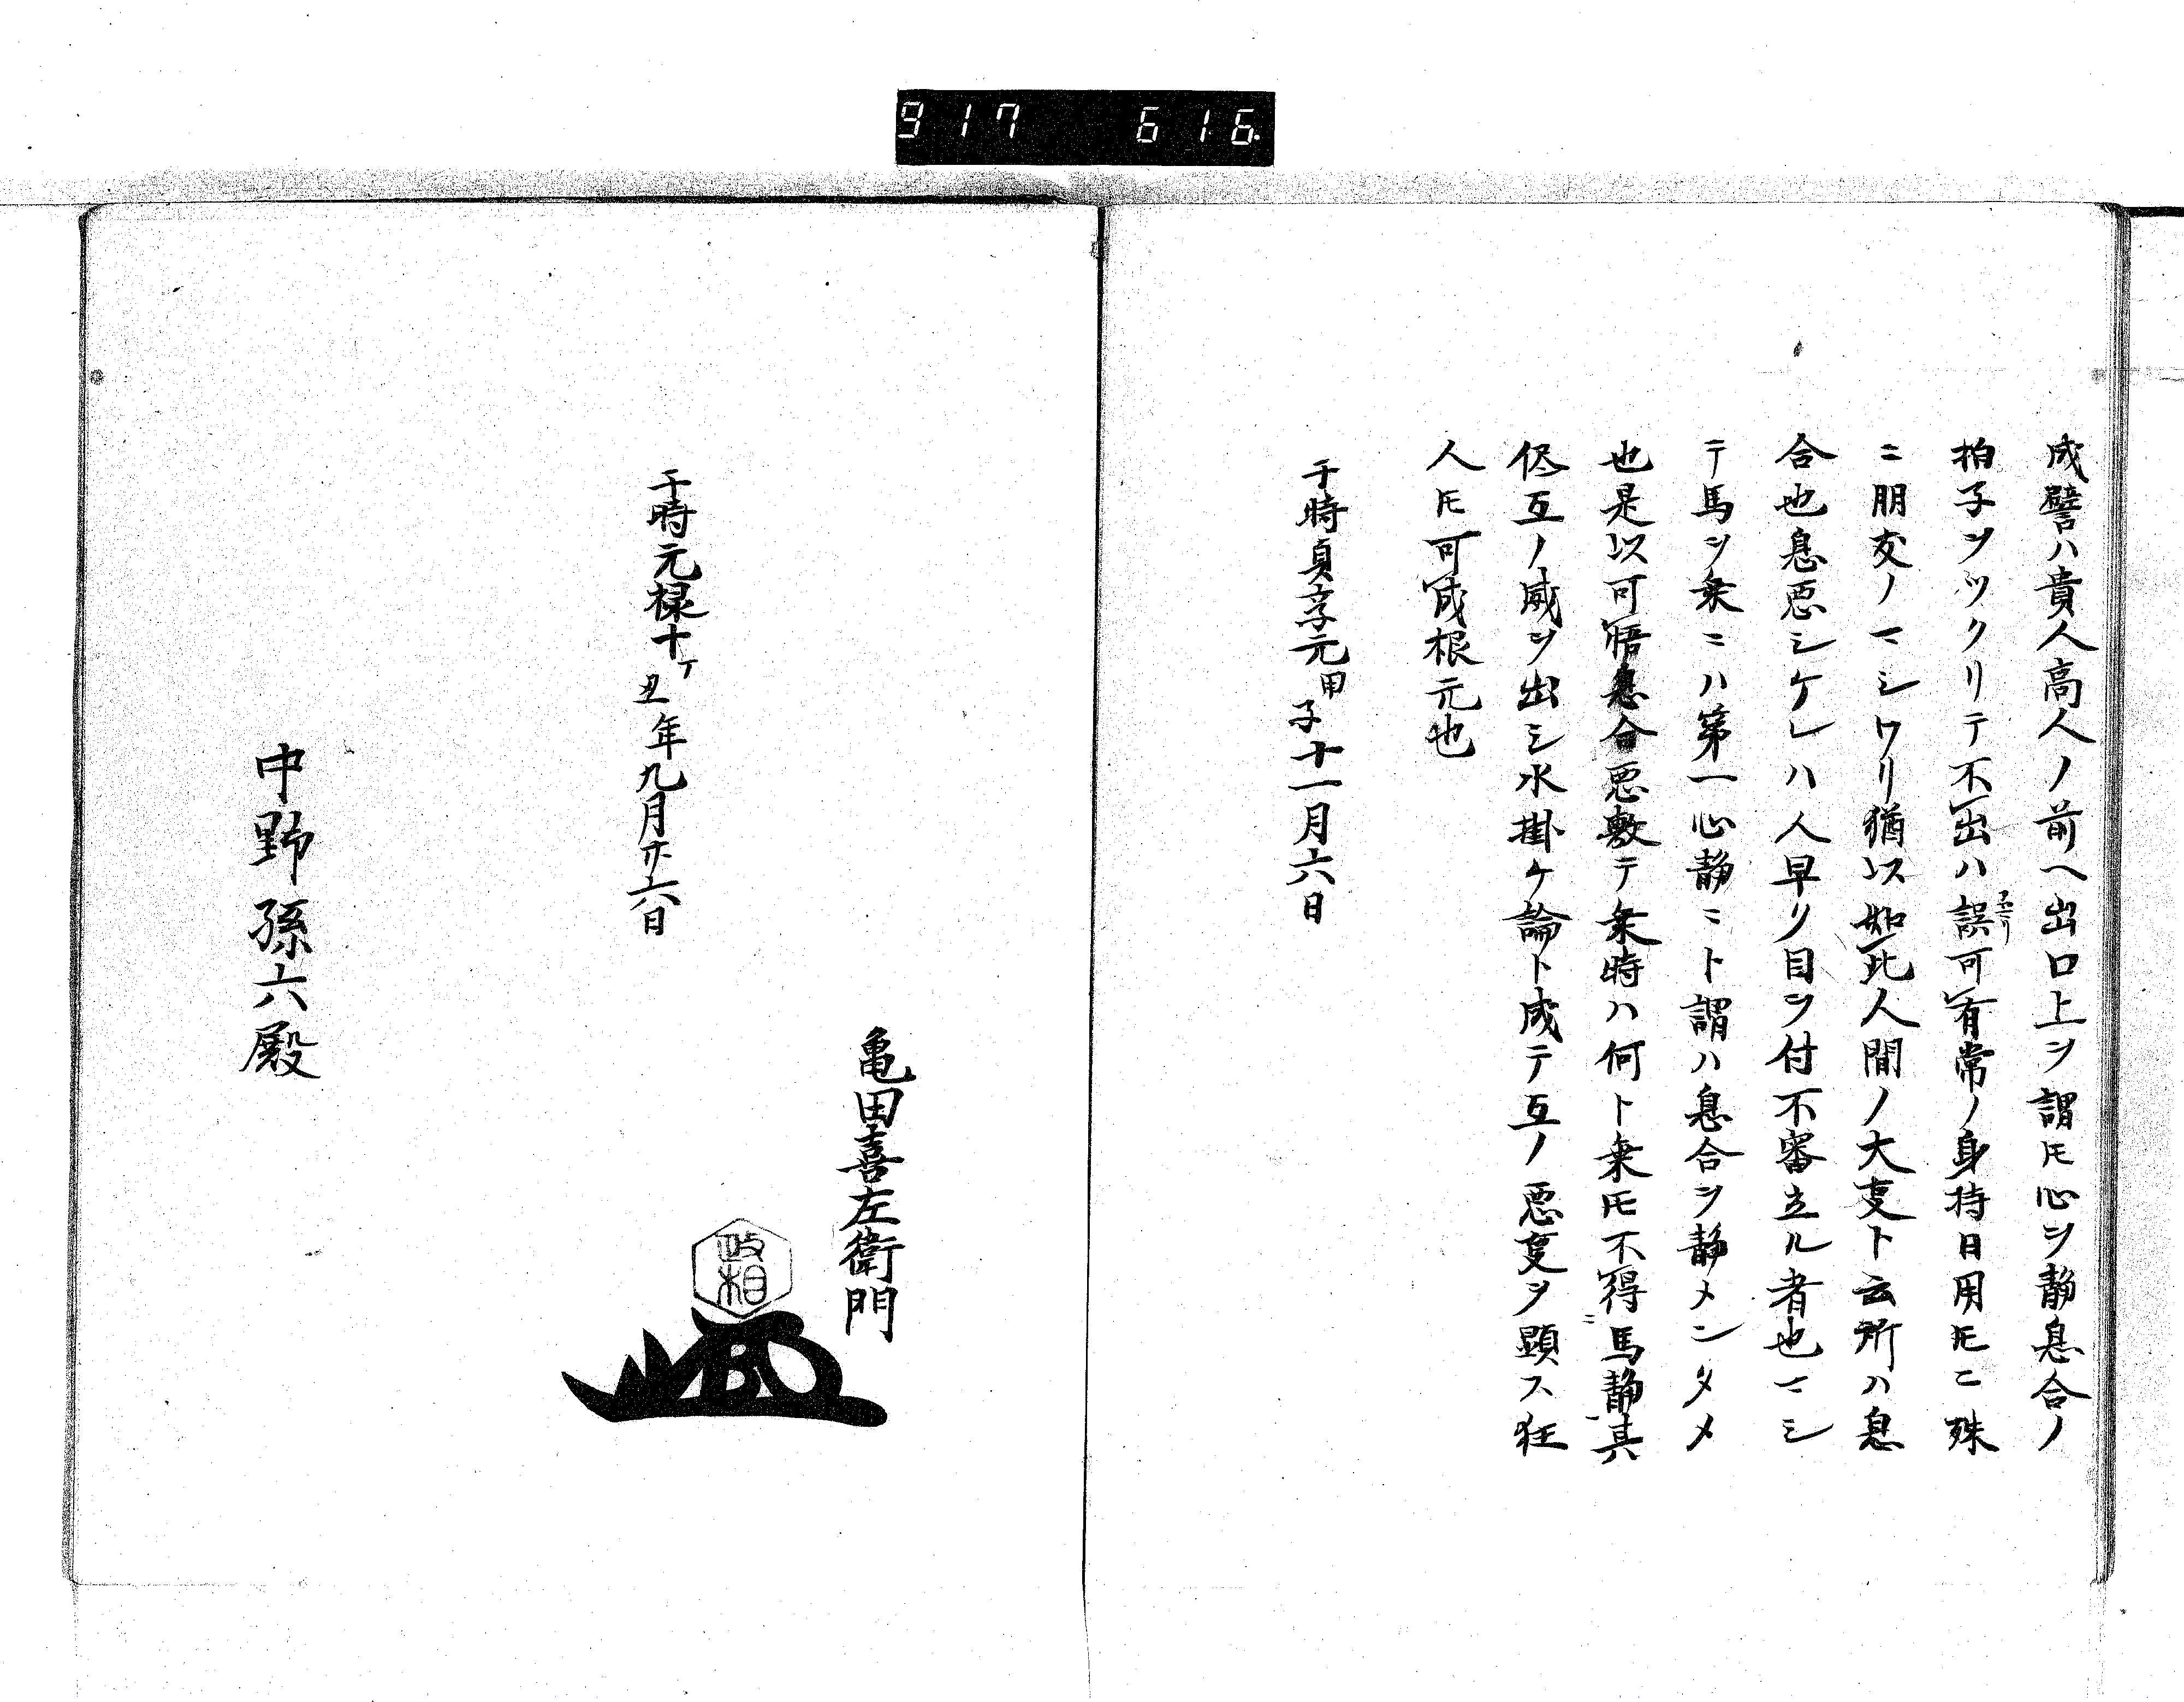 917 616
成譬ハ貴人高人ノ前ヘ出口上ヲ謂𪜈心ヲ静息合ノ
拍子ヲツクリテ不出ハ誤可有常ノ身持日用𪜈ニ殊
ニ朋友ノマシワリ猶以如此人間ノ大事ト云所ハ息
合也息悪シケレハ人早リ目ヲ付不審立ル者也マシ
テ馬ヲ乗ニハ第一心静ニト謂ハ息合ヲ静メンタメ
也是以可悟息合悪敷テ乗時ハ何ト乗𪜈不得馬静其
侭互ノ威ヲ出シ水掛ケ論ト成テ互ノ悪事ヲ顕ス狂
人𪜈可成根元也
于時貞享元甲子十一月六日
亀田喜左衛門
政相
于時元禄十丁丑年九月廿六日
中野孫六殿